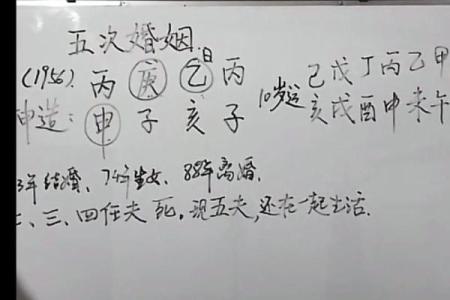 五次婚姻:
日
(1956). 丙 庚 乙 丙 己戊丁丙乙甲
申造: 申 子 亥 子 10岁运 亥戌酉申未午
3年结婚、74年生女、88年离婚.
、三、四任夫死,现五夫,还在一起生活.